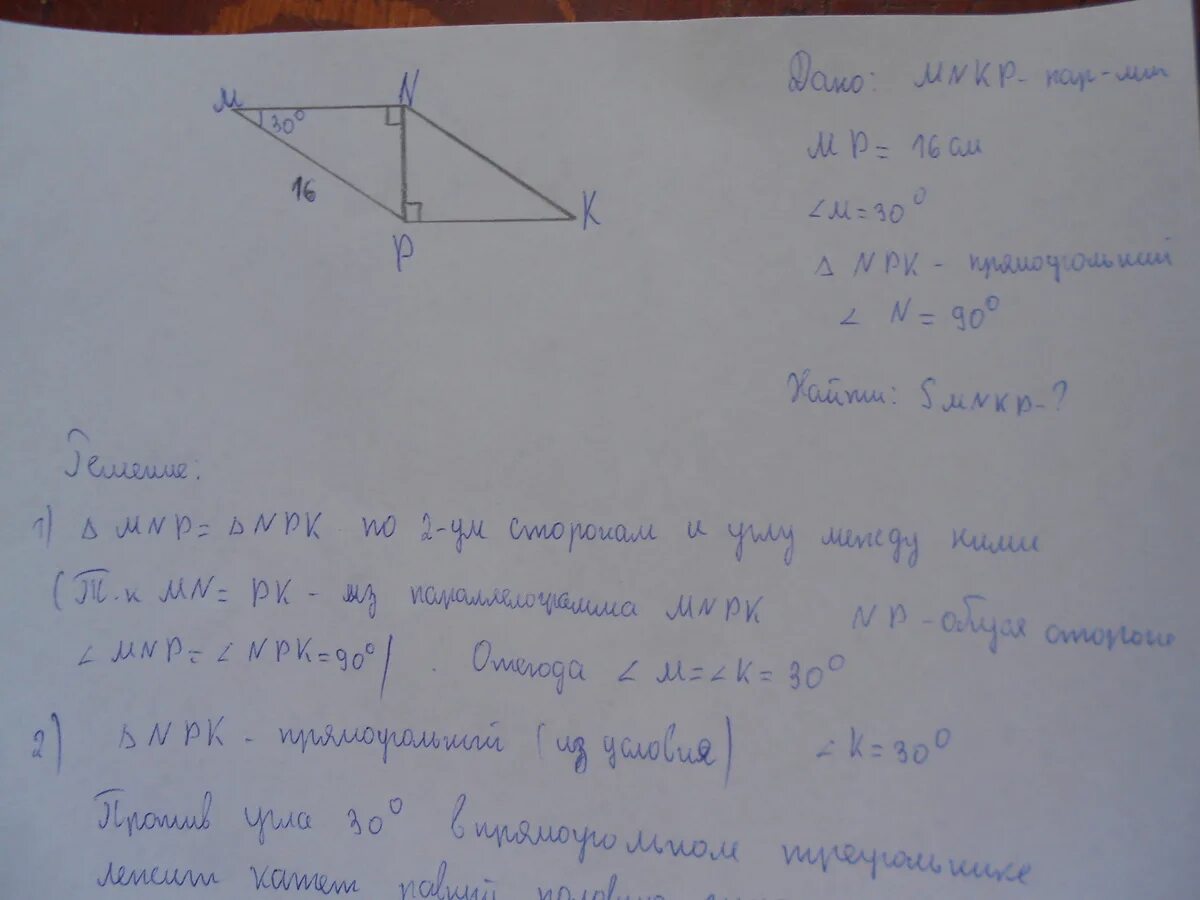 M
N
30°
16
P
K
Дано: MNKP - пар-мм
MP = 16 см
∠M = 30°
△ NPK - прямоугольний
∠ N = 90°
Найти: S MNKP - ?
Решение:
1) △ MNP = △ NPK по 2-ум сторонам и углу между ними
(Т.к MN = PK - из параллелограмма MNPK NP - общая сторона
∠ MNP = ∠ NPK = 90°) . Отсюда ∠ M = ∠ K = 30°
2) △ NPK - прямоугольний (из условия) ∠ K = 30°
Против угла 30° в прямоугольном треугольнике
лежит катет равний